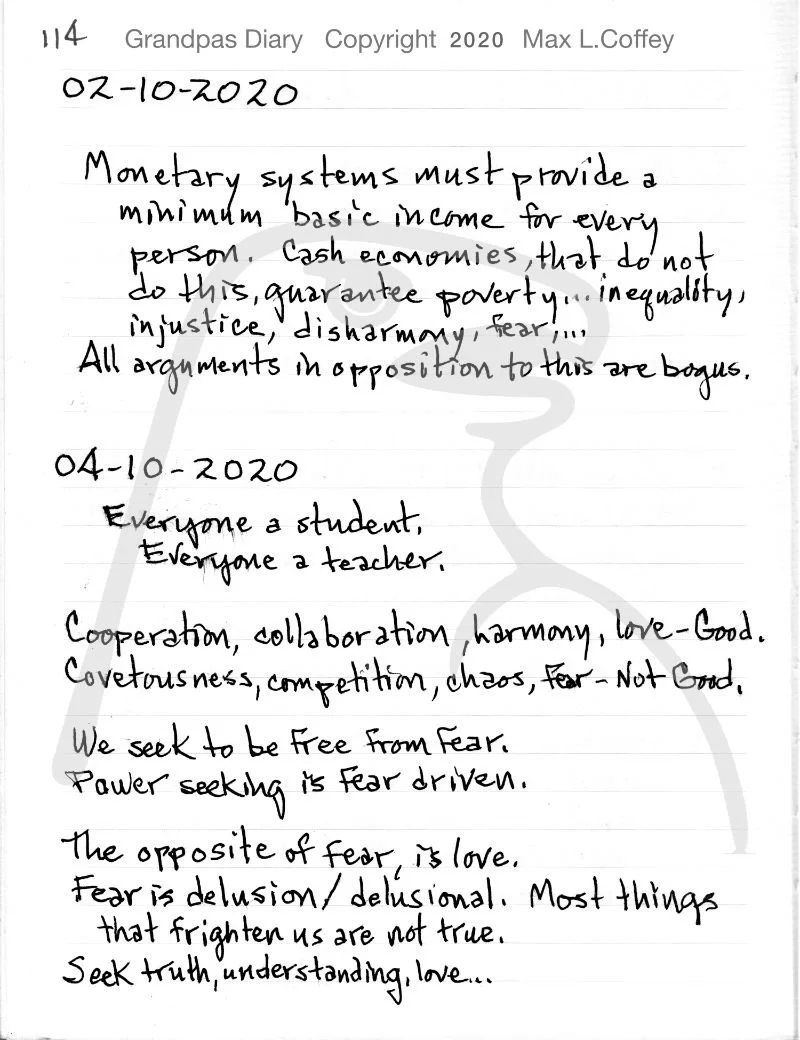 114 Grandpas Diary Copyright 2020 Max L.Coffey
02-10-2020
Monetary systems must provide a
minimum basic income for every
person. Cash economies, that do not
do this, guarantee poverty... inequality,
injustice, disharmony, fear,...
All arguments in opposition to this are bogus.
04-10-2020
Everyone a student,
Everyone a teacher.
Cooperation, collaboration, harmony, love-Good.
Covetousness, competition, chaos, Fear-Not Good.
We seek to be free from Fear.
Power seeking is Fear driven.
The opposite of fear, is love.
Fear is delusion/delusional. Most things
that frighten us are not true.
Seek truth, understanding, love...